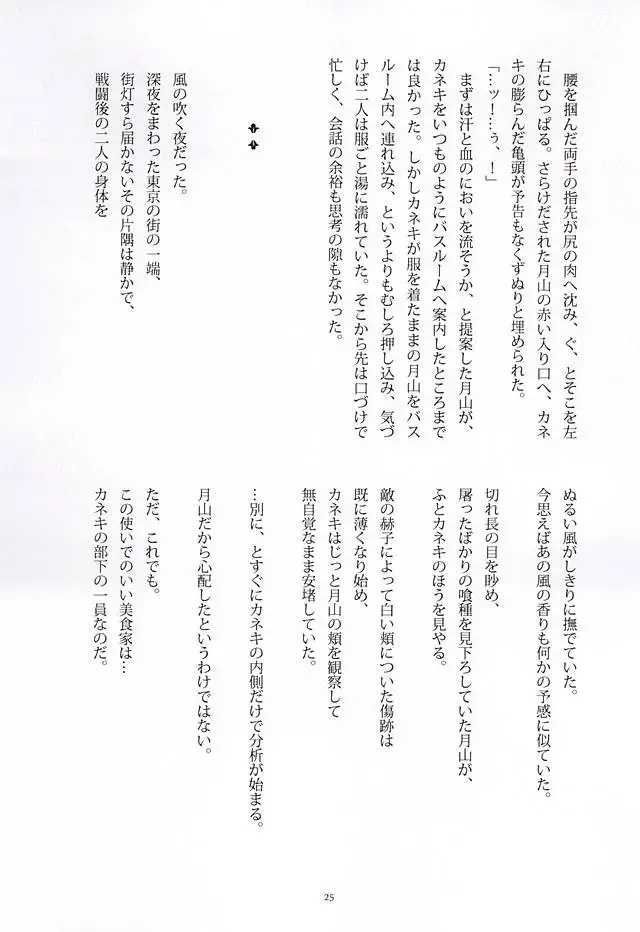 腰を掴んだ両手の指先が尻の肉へ沈み、ぐ、とそこを左
右にひっぱる。さらけだされた月山の赤い入り口へ、カネ
キの膨らんだ亀頭が予告もなくずぬりと埋められた。
「…ッ！…ぅ、！」
まずは汗と血のにおいを流そうか、と提案した月山が、
カネキをいつものようにバスルームへ案内したところまで
は良かった。しかしカネキが服を着たままの月山をバス
ルーム内へ連れ込み、というよりもむしろ押し込み、気づ
けば二人は服ごと湯に濡れていた。そこから先は口づけで
忙しく、会話の余裕も思考の隙もなかった。
風の吹く夜だった。
深夜をまわった東京の街の一端、
街灯すら届かないその片隅は静かで、
戦闘後の二人の身体を
ぬるい風がしきりに撫でていた。
今思えばあの風の香りも何かの予感に似ていた。
切れ長の目を眇め、
屠ったばかりの喰種を見下ろしていた月山が、
ふとカネキのほうを見やる。
敵の赫子によって白い頬についた傷跡は
既に薄くなり始め、
カネキはじっと月山の頬を観察して
無自覚なまま安堵していた。
…別に、とすぐにカネキの内側だけで分析が始まる。
月山だから心配したというわけではない。
ただ、これでも。
この使いでのいい美食家は…
カネキの部下の一員なのだ。
25